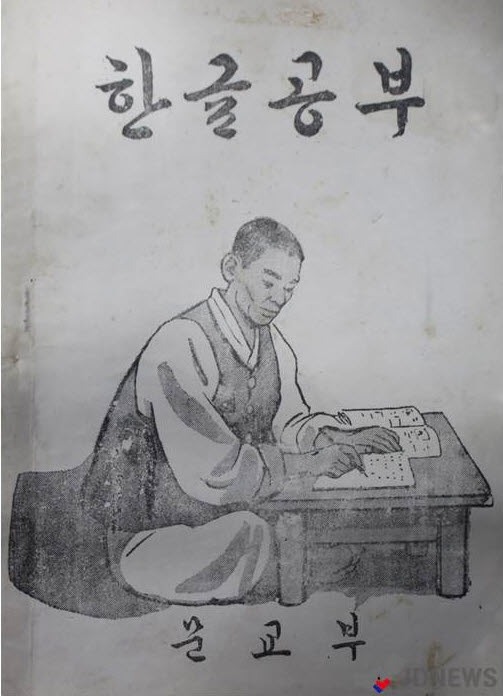 한글공부
문교부
JDNEWS